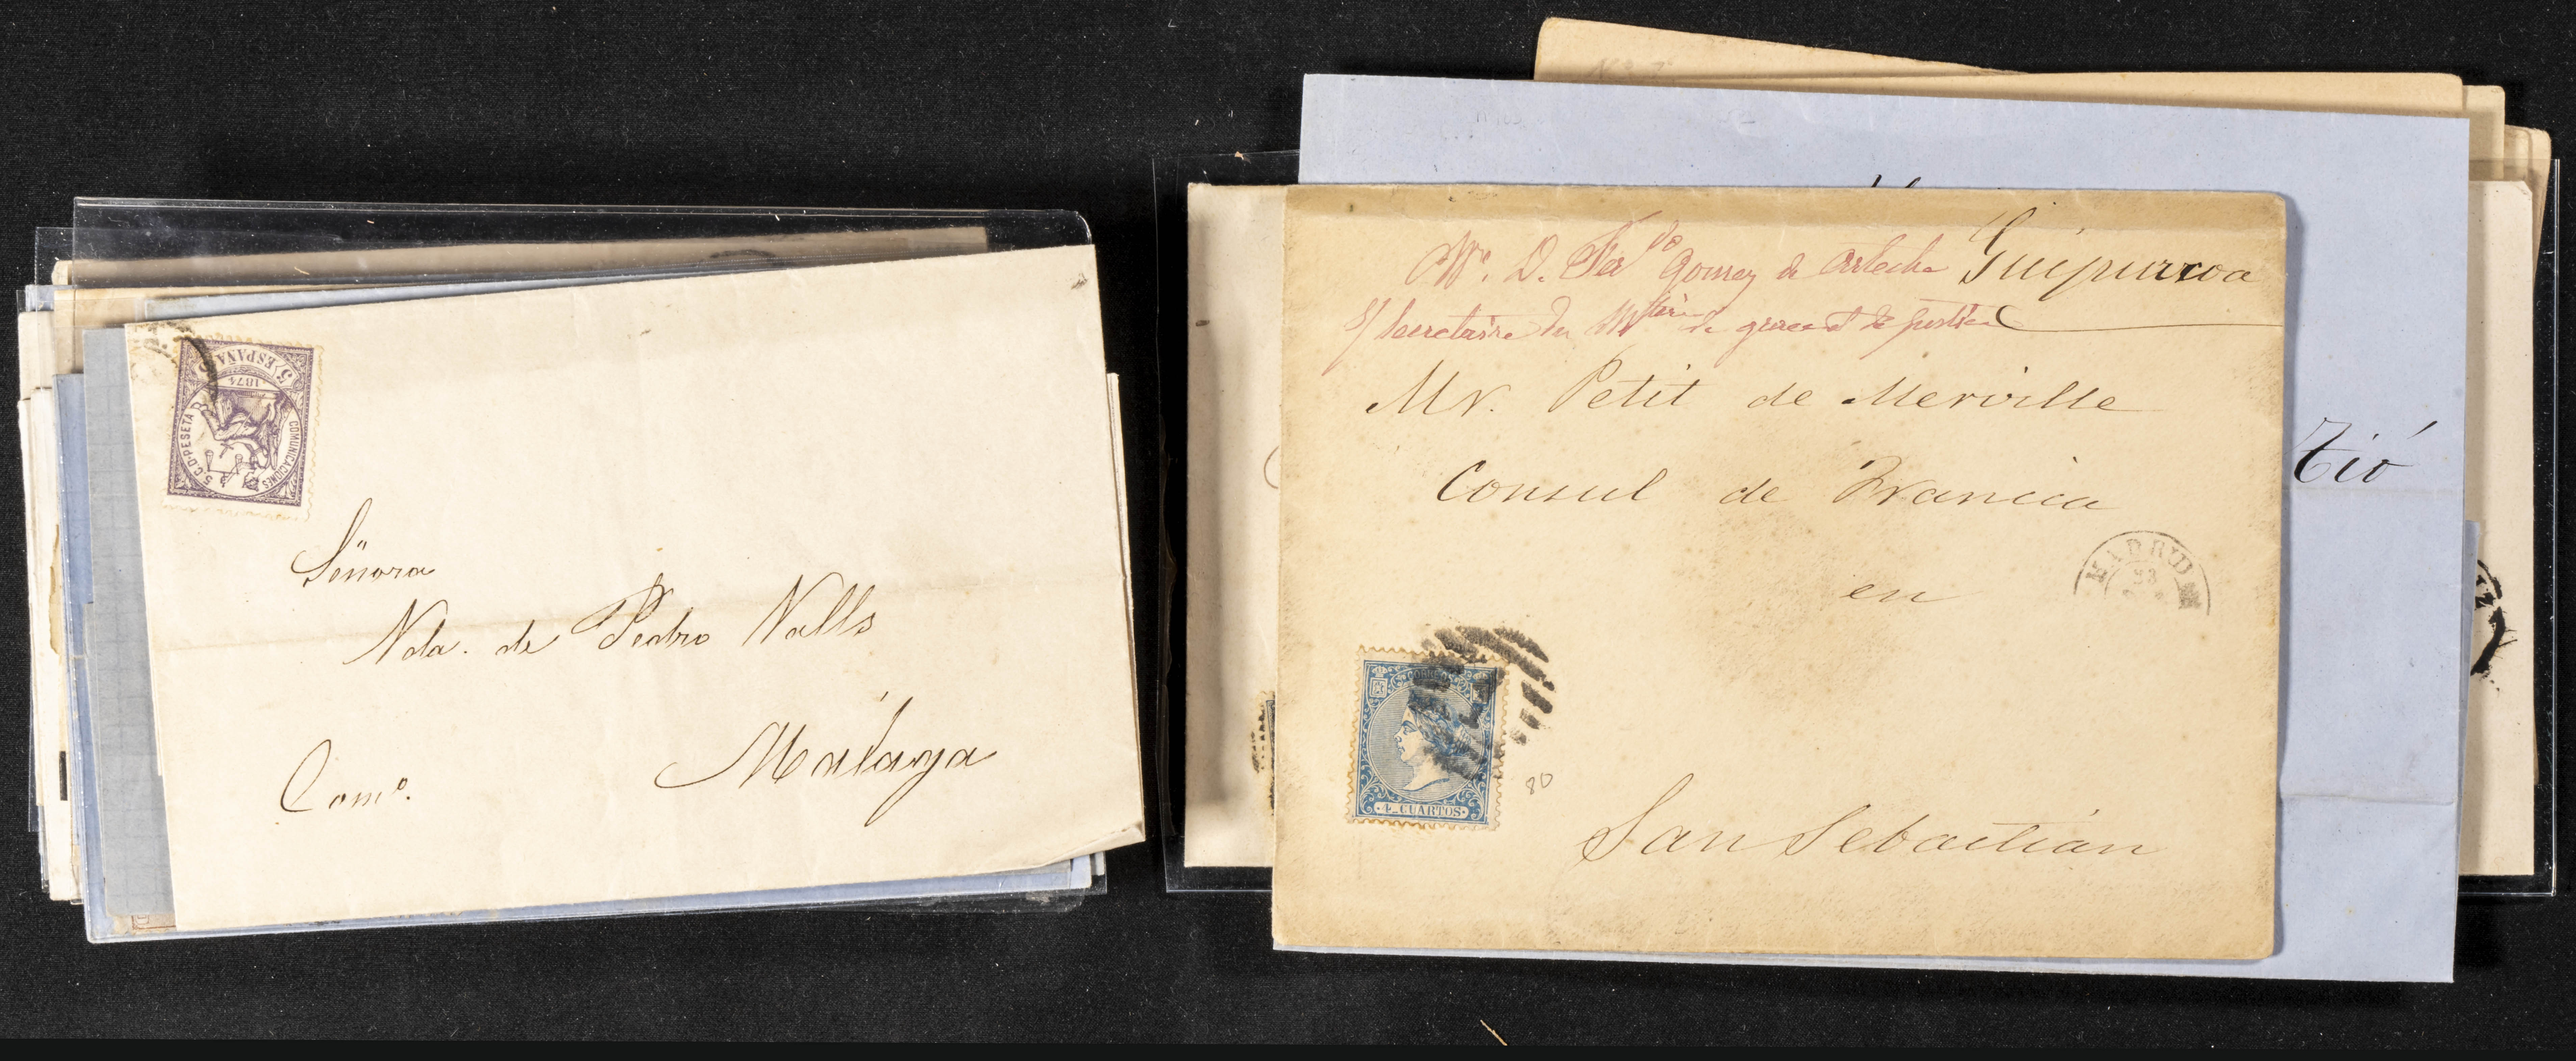 5 ESPAÑA
1874
COMUNICACIONES
5 C. D. PESETA
Señora
Vda. de Pedro Valls
Málaga
Comº.
Mr. D. Ferdo Gomez de Arteche Guipuzcoa
S/ Secretaire du Mtère de grace et de justice
Mr. Petit de Meriville
Consul de Francia
en
San Sebastian
MADRID
23
CORREOS
4 CUARTOS
80
Tió